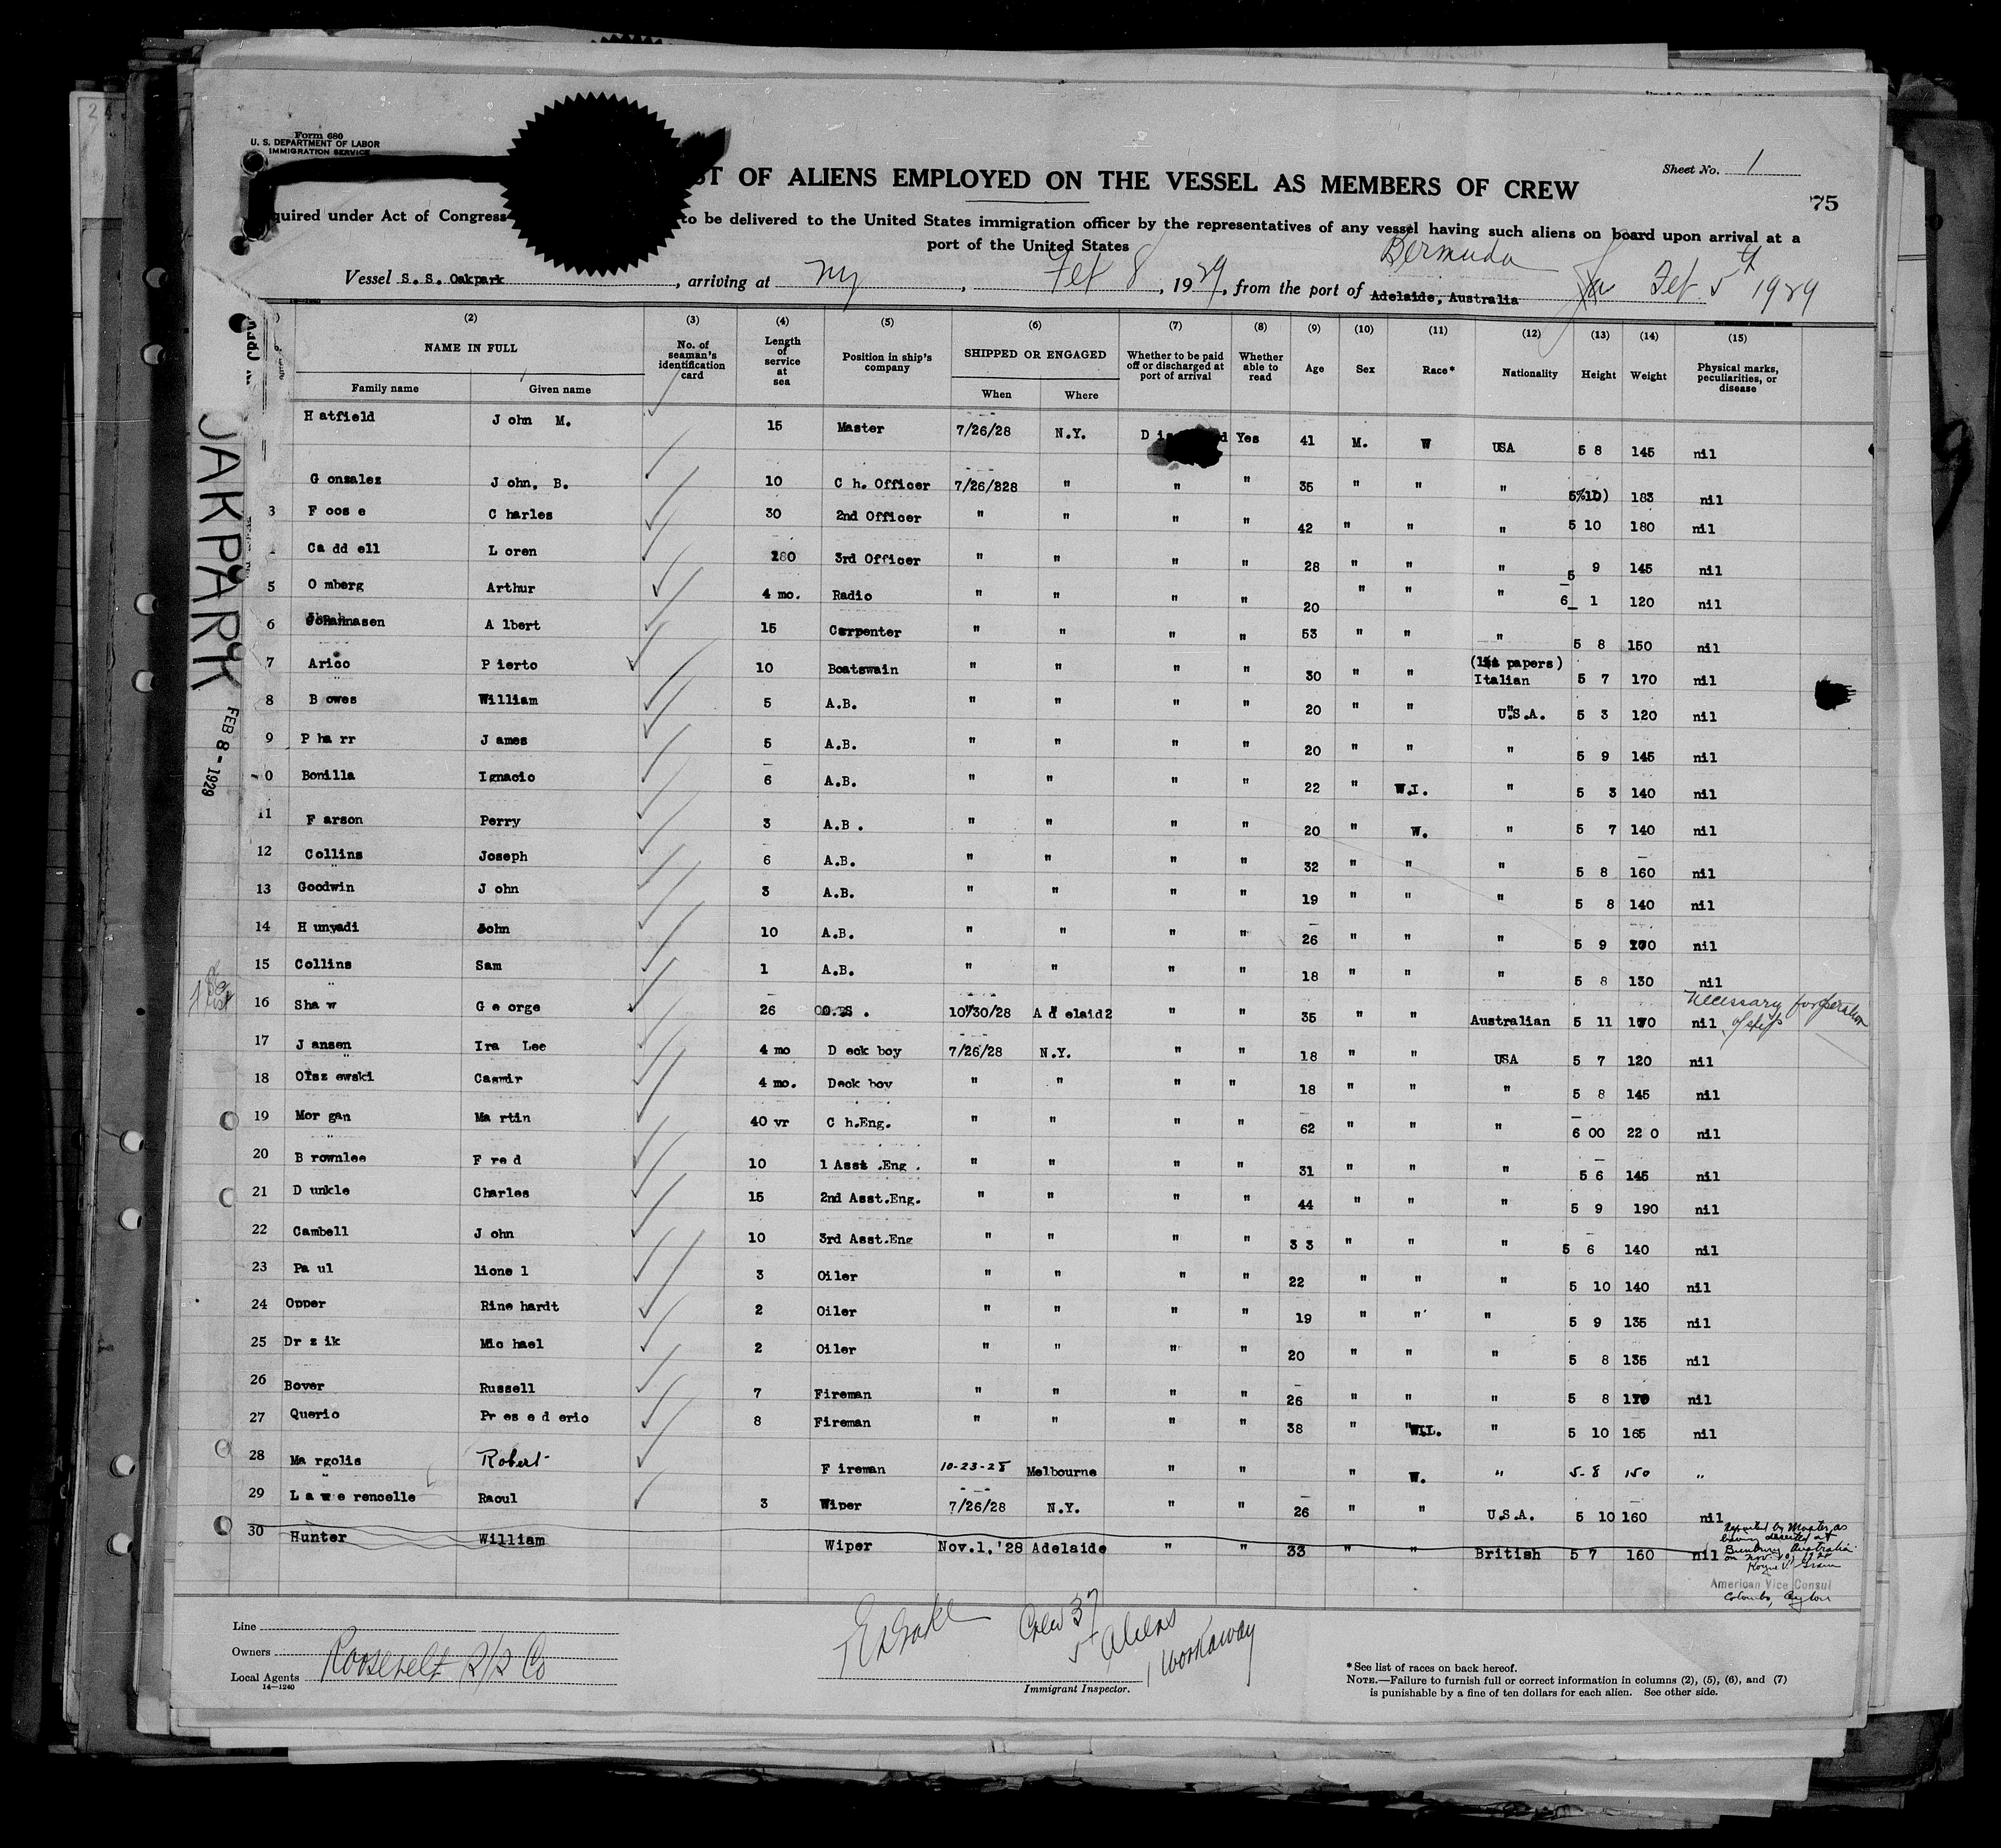 Form 680
U. S. DEPARTMENT OF LABOR
IMMIGRATION SERVICE
Sheet No. 1
ST OF ALIENS EMPLOYED ON THE VESSEL AS MEMBERS OF CREW
75
quired under Act of Congress to be delivered to the United States immigration officer by the representatives of any vessel having such aliens on board upon arrival at a
port of the United States
Bermuda
Vessel S.S. Oakpark, arriving at NY, Feb 8, 1929, from the port of Adelaide, Australia Feb 5 1929
(2) (3) (4) (5) (6) (7) (8) (9) (10) (11) (12) (13) (14) (15)
NAME IN FULL No. of seaman's identification card Length of service at sea Position in ship's company SHIPPED OR ENGAGED Whether to be paid off or discharged at port of arrival Whether able to read Age Sex Race* Nationality Height Weight Physical marks, peculiarities, or disease
Family name Given name When Where
Hatfield John M. 15 Master 7/26/28 N.Y. Yes 41 M. W USA 5 8 145 nil
Gonzalez John. B. 10 Ch. Officer 7/26/828 " " " 35 " " " 183 nil
3 Foose Charles 30 2nd Officer " " " " 42 " " " 5 10 180 nil
Caddell Loren 3rd Officer " " " " 28 " " " 5 9 145 nil
5 Omberg Arthur 4 mo. Radio " " " " 20 " " " 6 1 120 nil
6 Johannasen Albert 15 Carpenter " " " " 53 " " " 5 8 150 nil
7 Arico Pierto 10 Boatswain " " " " 30 " " (1st papers) Italian 5 7 170 nil
8 Bowes William 5 A.B. " " " " 20 " " U.S.A. 5 3 120 nil
9 Pharr James 5 A.B. " " " " 20 " " " 5 9 145 nil
0 Bonilla Ignacio 6 A.B. " " " " 22 " W.I. " 5 3 140 nil
11 Farson Perry 3 A.B. " " " " 20 " W. " 5 7 140 nil
12 Collins Joseph 6 A.B. " " " " 32 " " " 5 8 160 nil
13 Goodwin John 3 A.B. " " " " 19 " " " 5 8 140 nil
14 Hunyadi John 10 A.B. " " " " 26 " " " 5 9 nil
15 Collins Sam 1 A.B. " " " " 18 " " " 5 8 130 nil
16 Shaw George 26 O.S. 10/30/28 Adelaid2 " " 35 " " Australian 5 11 nil Necessary for operation of ship
17 Jansen Ira Lee 4 mo Deck boy 7/26/28 N.Y. " " 18 " " USA 5 7 120 nil
18 Olszewski Casmir 4 mo. Deck boy " " " " 18 " " " 5 8 145 nil
19 Morgan Martin 40 yr Ch.Eng. " " " " 62 " " " 6 00 220 nil
20 Brownlee Fred 10 1 Asst.Eng. " " " " 31 " " " 5 6 145 nil
21 Dunkle Charles 15 2nd Asst.Eng. " " " " 44 " " " 5 9 190 nil
22 Cambell John 10 3rd Asst.Eng " " " " 33 " " " 5 6 140 nil
23 Paul lionel 3 Oiler " " " " 22 " " " 5 10 140 nil
24 Opper Rinehardt 2 Oiler " " " " 19 " " " 5 9 135 nil
25 Drzik Michael 2 Oiler " " " " 20 " " " 5 8 135 nil
26 Bover Russell 7 Fireman " " " " 26 " " " 5 8 nil
27 Querio Presederio 8 Fireman " " " " 38 " W.I. " 5 10 165 nil
28 Margolis Robert Fireman 10-23-28 Melbourne " " " W. " 5-8 150 "
29 Lawerencelle Raoul 3 Wiper 7/26/28 N.Y. " " 26 " " U.S.A. 5 10 160 nil
30 Hunter William Wiper Nov.1.'28 Adelaide " " 33 " " British 5 7 160 nil
Reported by Master as
having deserted at
Bunbury Australia
on Nov. 10, 1928
American Vice Consul
Colombo, Ceylon
OAKPARK
FEB 8 - 1929
Line
Owners
Local Agents Roosevelt S/S Co
14-1240
Crew 37
5 Aliens
1 Workaway
Immigrant Inspector.
*See list of races on back hereof.
NOTE.—Failure to furnish full or correct information in columns (2), (5), (6), and (7)
is punishable by a fine of ten dollars for each alien. See other side.